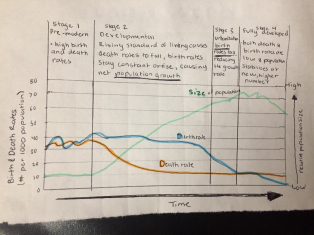 Stage 1
Pre-modern
• high birth
and death
rates
Stage 2
Developmental
Rising standard of living causes
death rates to fall, birth rates
Stay constant or rise, causing
net population growth
Stage 3
birth
rates fall
reducing
the growth
rate
Stage 4
Fully developed
both death &
birth rates are
low & population
stabilizes at
new, higher
number
Size of population
Birth rate
Death rate
80
70
60
50
40
30
20
10
0
Birth & Death Rates
(# per 1000 population)
High
Low
relative population size
Time